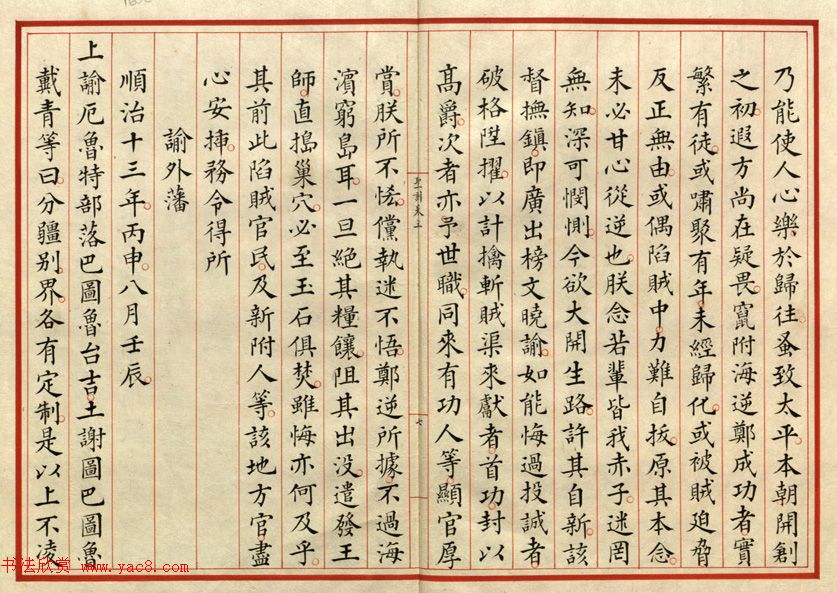 乃能使人心樂於歸往蚤致太平本朝開創
之初遐方尚在疑畏竄附海逆鄭成功者實
繁有徒或嘯聚有年未經歸化或被賊迫脅
反正無由或偶陷賊中力難自拔原其本念
未必甘心從逆也朕念若輩皆我赤子迷罔
無知深可憫惻今欲大開生路許其自新該
督撫鎮即廣出榜文曉諭如能悔過投誠者
破格陞擢以計擒斬賊渠來獻者首功封以
高爵次者亦予世職同來有功人等顯官厚
聖訓卷三
七
賞朕所不恡儻執迷不悟鄭逆所據不過海
濱窮島耳一旦絕其糧饟阻其出沒遣發王
師直搗巢穴必至玉石俱焚雖悔亦何及乎
其前此陷賊官民及新附人等該地方官盡
心安揷務令得所
諭外藩
順治十三年丙申八月壬辰
上諭厄魯特部落巴圖魯台吉土謝圖巴圖魯
戴青等曰分疆別界各有定制是以上不凌
书法欣赏 www.yac8.com